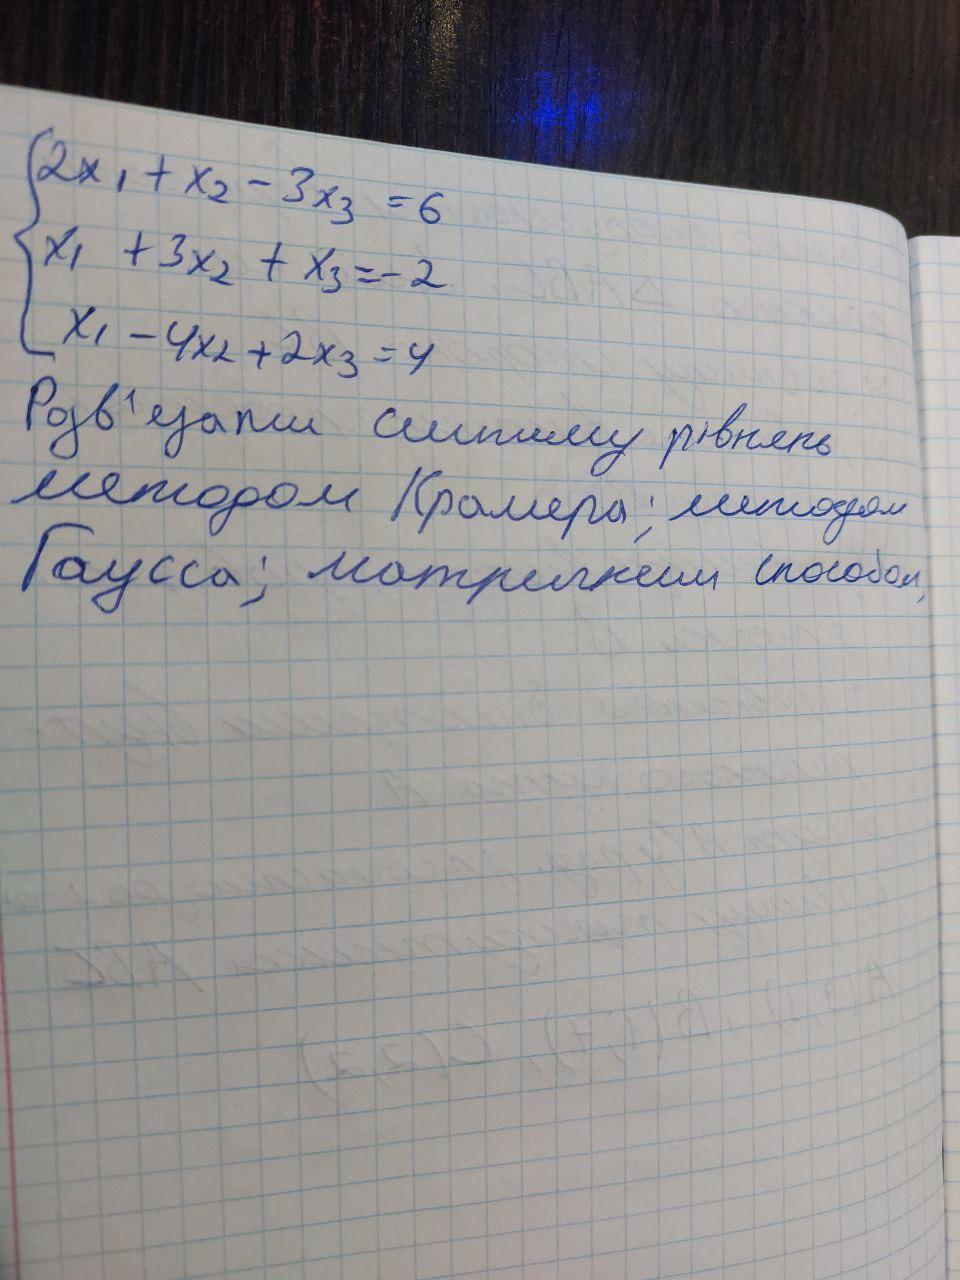 2x₁ + x₂ - 3x₃ = 6
x₁ + 3x₂ + x₃ = -2
x₁ - 4x₂ + 2x₃ = 4
Розв'язати систему рівнянь
методом Крамера; методом
Гаусса; матричним способом,